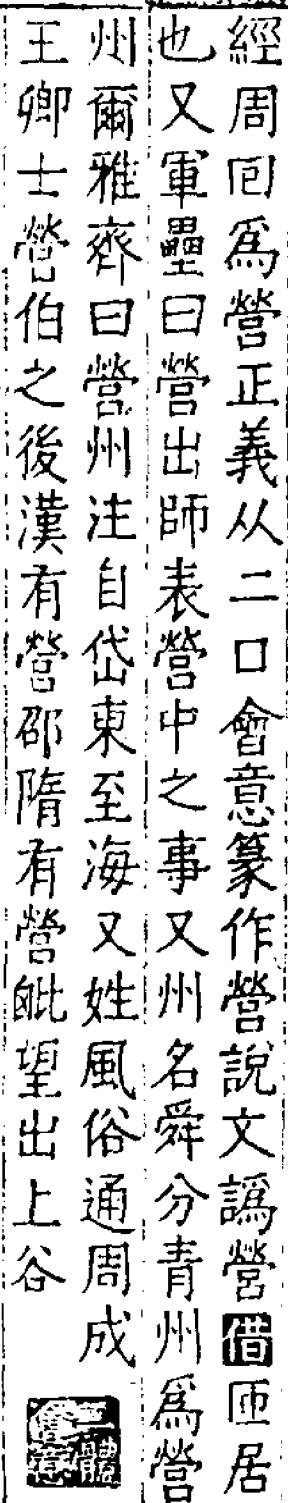 經周囘爲營正義从二口會意篆作營說文譌營借匝居
也又軍壘曰營出師表營中之事又州名舜分青州爲營
州爾雅齊曰營州注自岱東至海又姓風俗通周成
王卿士營伯之後漢有營邵隋有營毗望出上谷
體
會意